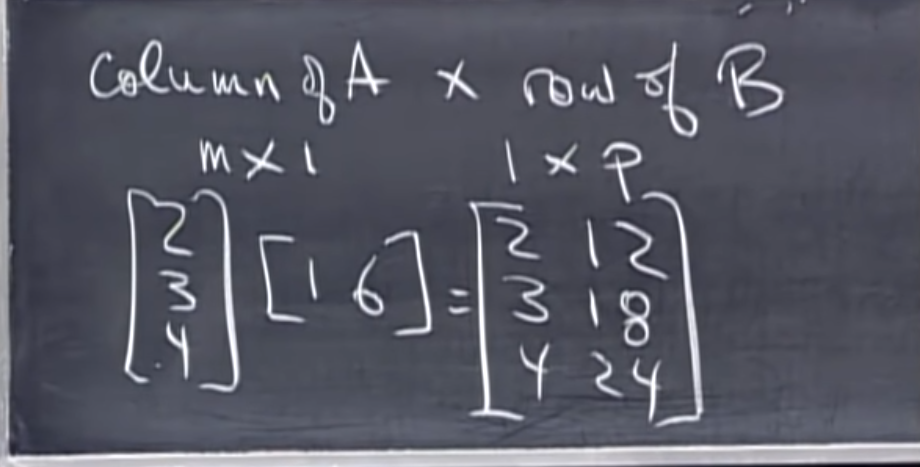 column of A x row of B
m x 1 1 x p
[2 3 4] [1 6] = [2 12
3 18
4 24]